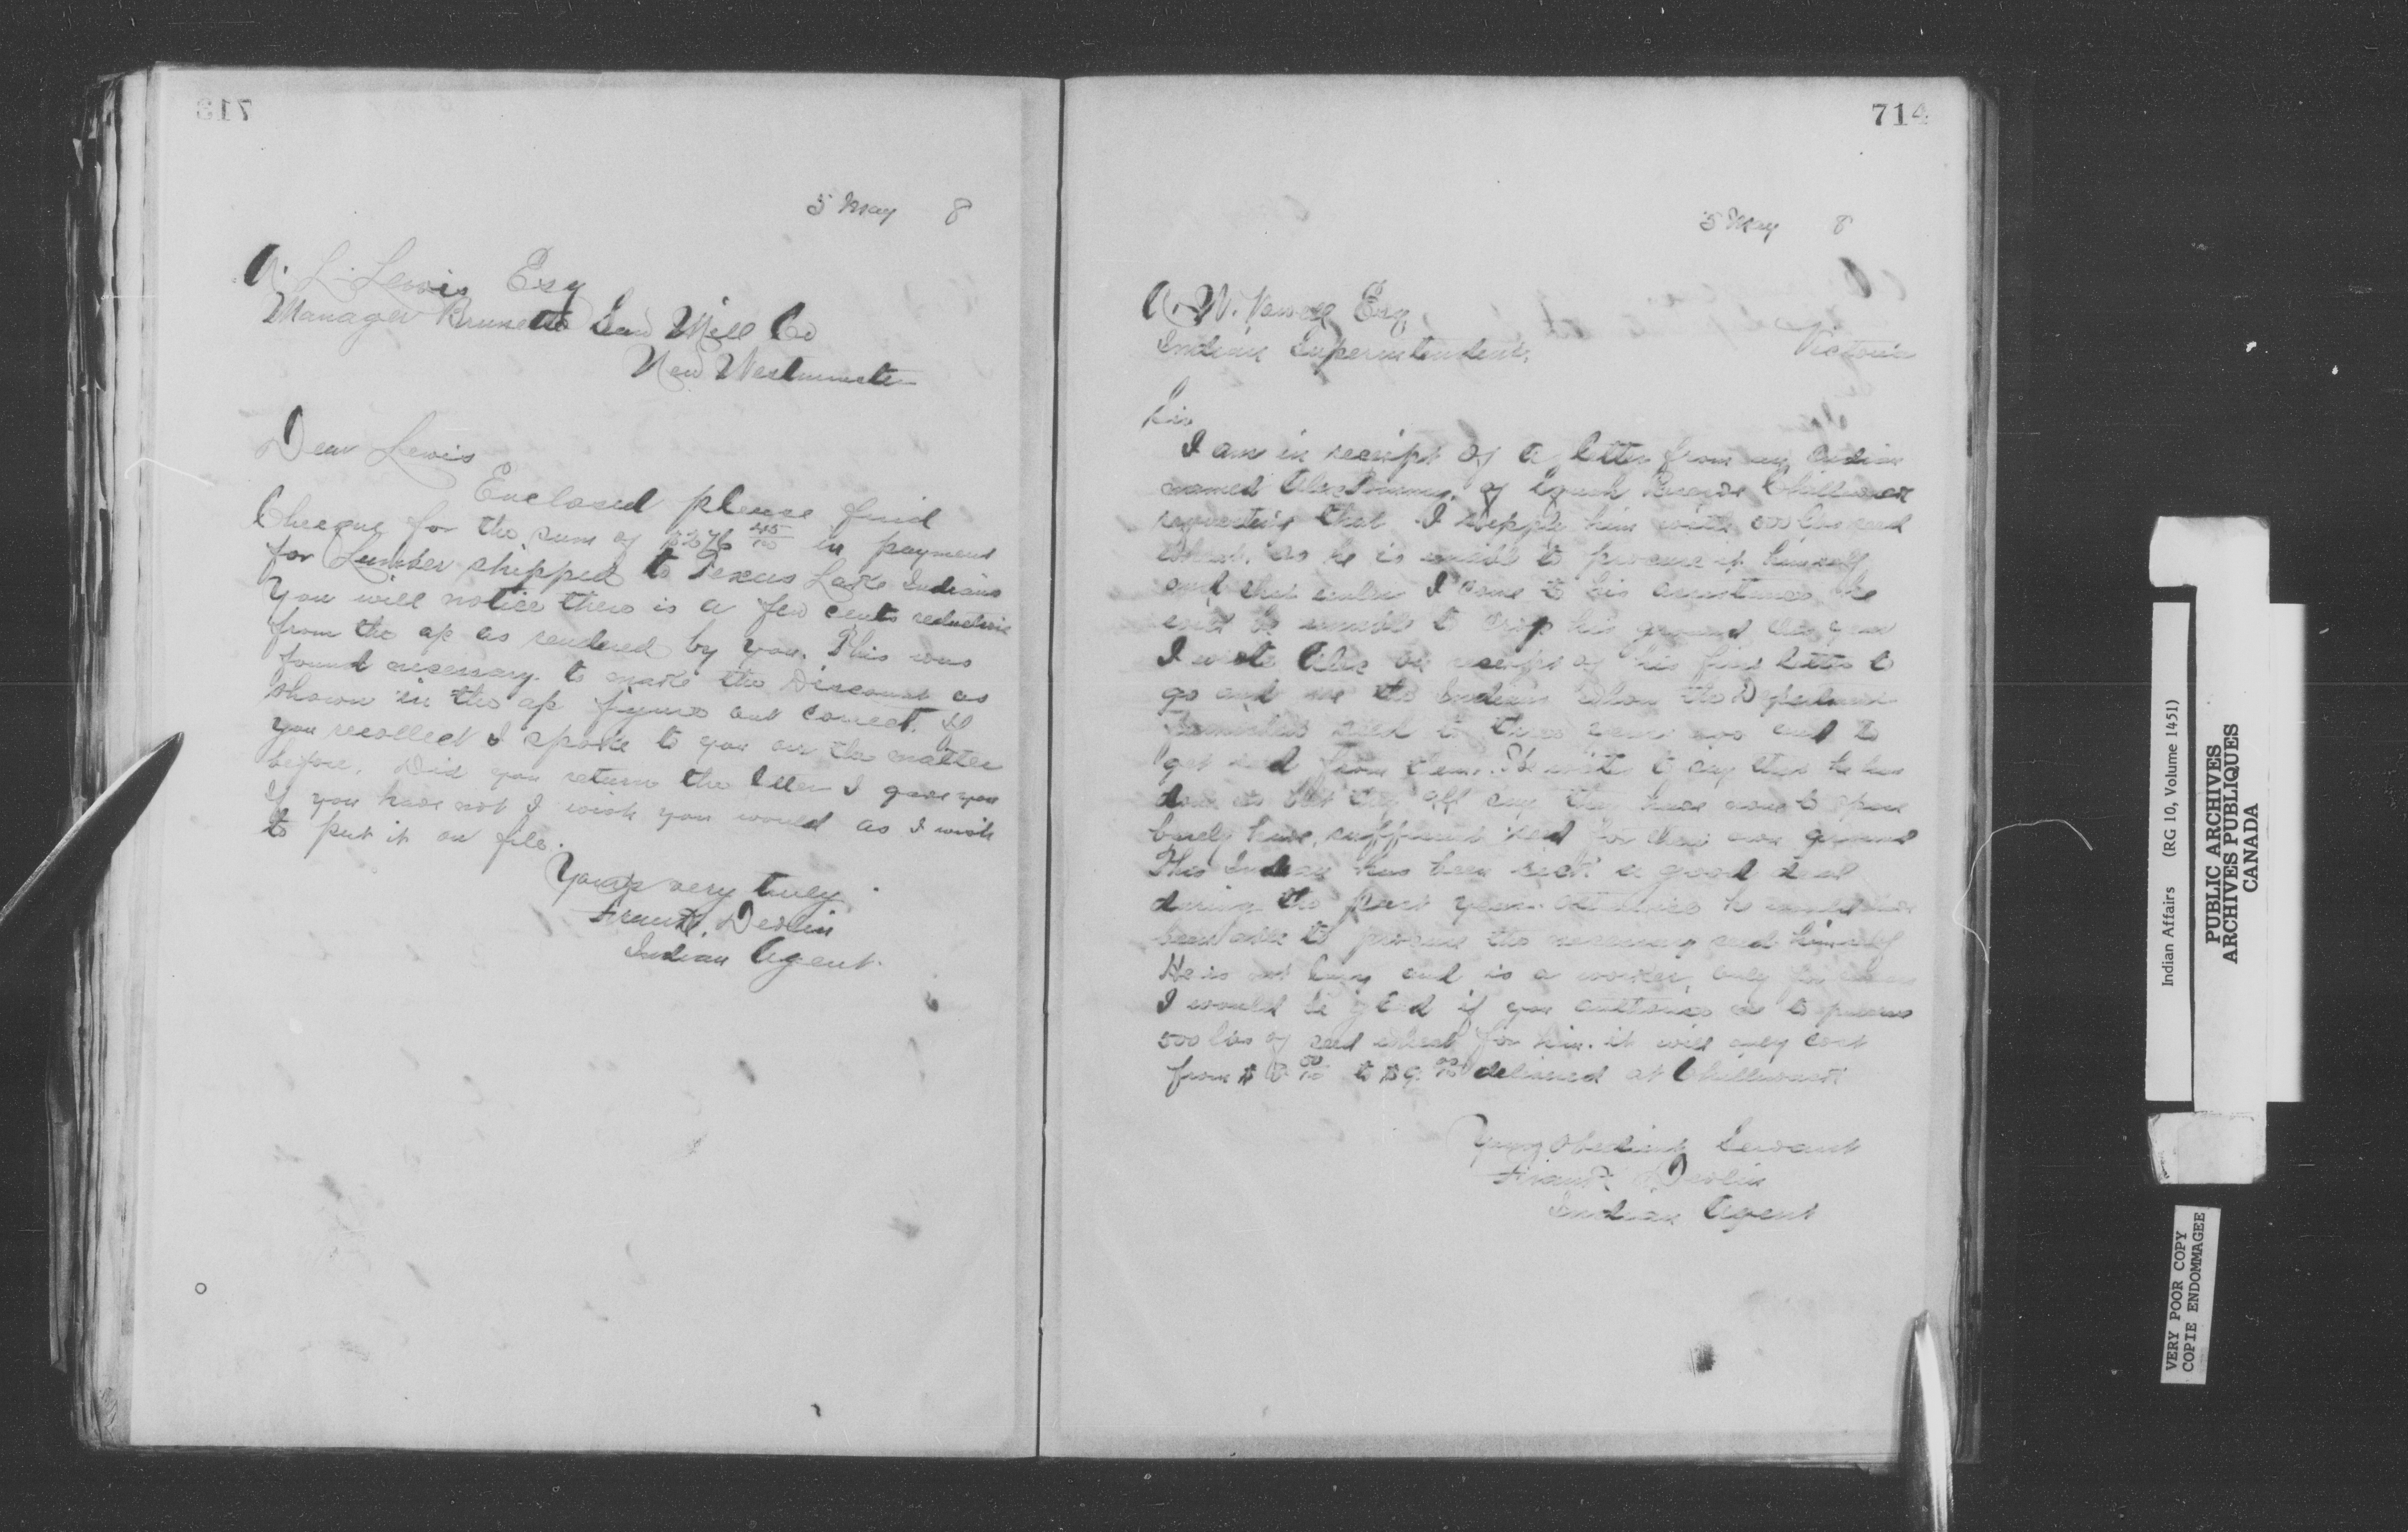 713
5 May 8
A. L. Lewis Esq
Manager Brunette Saw Mill Co
New Westminster
Dear Lewis
Enclosed please find
Cheque for the sum of 45/100 in payment
for Lumber shipped to Texas Lake Indians
You will notice there is a few cents reduction
from the a/c as rendered by you. This was
found necessary to make the Discount as
shown in the a/c figure out correct. If
you recollect I spoke to you on the matter
before. Did you return the letter I gave you
If you have not I wish you would as I wish
to put it on file.
Yours very truly
Frank Devlin
Indian Agent.
714
5 May 8
A. W. Vowell Esq
Indian Superintendent,
Victoria
Sir
I am in receipt of a letter from an Indian
named Alex of Chilliwack
requesting that I supply him with 500 lbs seed
wheat, as he is unable to procure it himself
and that unless I come to his assistance he
will be unable to crop his ground this year
I wrote Alex on receipt of his first letter to
go and see the Indians whom the Department
furnished seed to three years ago and to
get seed from them. He writes to say that he has
done so but they all say they have none to spare
barely have sufficient seed for their own ground
This Indian has been sick a good deal
during the past year. Otherwise he would have
been able to procure the necessary seed himself
He is not lazy and is a worker, only
I would be glad if you authorize me to procure
500 lbs of seed wheat for him. it will only cost
from $ 00/100 to $9. 00/100 delivered at Chilliwack
Your obedient Servant
Frank Devlin
Indian Agent
Indian Affairs (RG 10, Volume 1451)
PUBLIC ARCHIVES
ARCHIVES PUBLIQUES
CANADA
VERY POOR COPY
COPIE ENDOMMAGEE